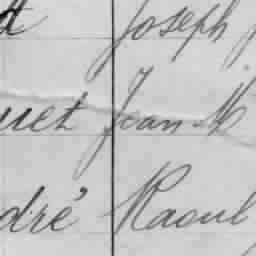 Joseph
uet Jean M
dré Raoul